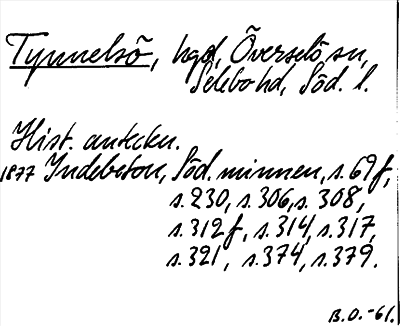 Tynnelsö, hgd, Överselö sn,
Selebo hd, Söd. l.
Hist. anteckn.
1877 Indebetou, Söd. minnen, s. 69 f,
s. 230, s. 306, s. 308,
s. 312 f, s. 314, s. 317,
s. 321, s. 374, s. 379.
B.O.-61.